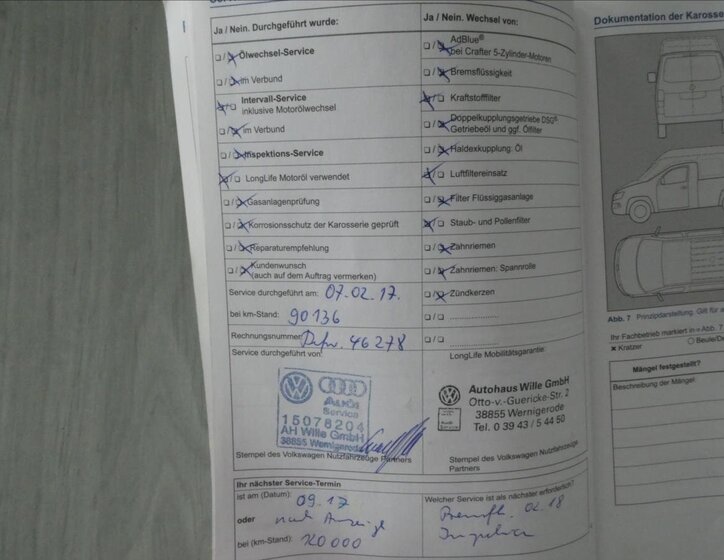 Ja / Nein. Durchgeführt wurde:
Ölwechsel-Service
im Verbund
Intervall-Service
inklusive Motorölwechsel
im Verbund
Inspektions-Service
LongLife Motoröl verwendet
Gasanlagenprüfung
Korrosionsschutz der Karosserie geprüft
Reparaturempfehlung
Kundenwunsch
(auch auf dem Auftrag vermerken)
Service durchgeführt am: 07.02.17.
bei km-Stand: 90136
Rechnungsnummer: 46278
Service durchgeführt von:
Service
15078204
AH Wille GmbH
38855 Wernigerode
Stempel des Volkswagen Nutzfahrzeuge Partners
Ja / Nein. Wechsel von:
AdBlue®
bei Crafter 5-Zylinder-Motoren
Bremsflüssigkeit
Kraftstofffilter
Doppelkupplungsgetriebe DSG®:
Getriebeöl und ggf. Ölfilter
Haldexkupplung: Öl
Luftfiltereinsatz
Filter Flüssiggasanlage
Staub- und Pollenfilter
Zahnriemen
Zahnriemen: Spannrolle
Zündkerzen
LongLife Mobilitätsgarantie:
Autohaus Wille GmbH
Otto-v.-Guericke-Str. 2
38855 Wernigerode
Tel. 0 39 43 / 5 44 50
Stempel des Volkswagen Nutzfahrzeuge
Partners
Ihr nächster Service-Termin
ist am (Datum): 09.17
oder nach Anzeige
bei (km-Stand): 120000
Welcher Service ist als nächster erforderlich?
Bremsfl. 02.18
Dokumentation der Karosse
Abb. 7 Prinzipdarstellung. Gilt für a
Ihr Fachbetrieb markiert in Abb. 7
Kratzer
Beule/De
Mängel festgestellt?
Beschreibung der Mängel: